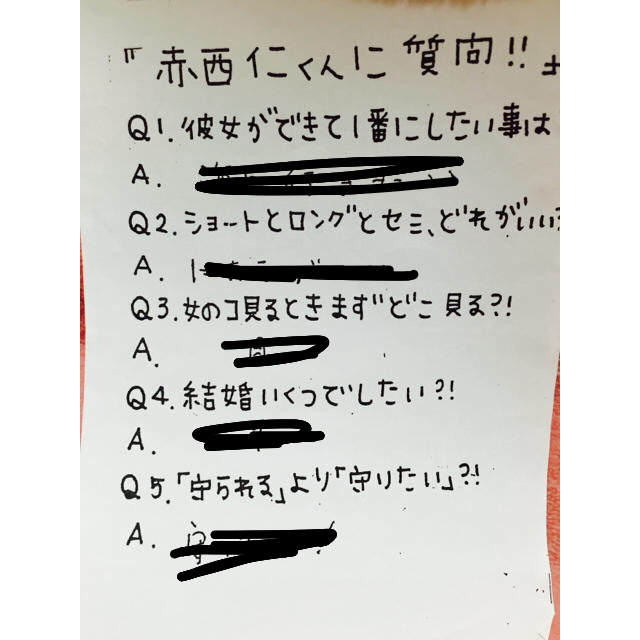 『赤西仁くんに質問!!』
Q1.彼女ができて1番にしたい事は
A.
Q2.ショートとロングとセミ、どれがいい?
A.
Q3.女のコ見るときまずどこ見る?!
A.
Q4.結婚いくつでしたい?!
A.
Q5.「守られる」より「守りたい」?!
A.